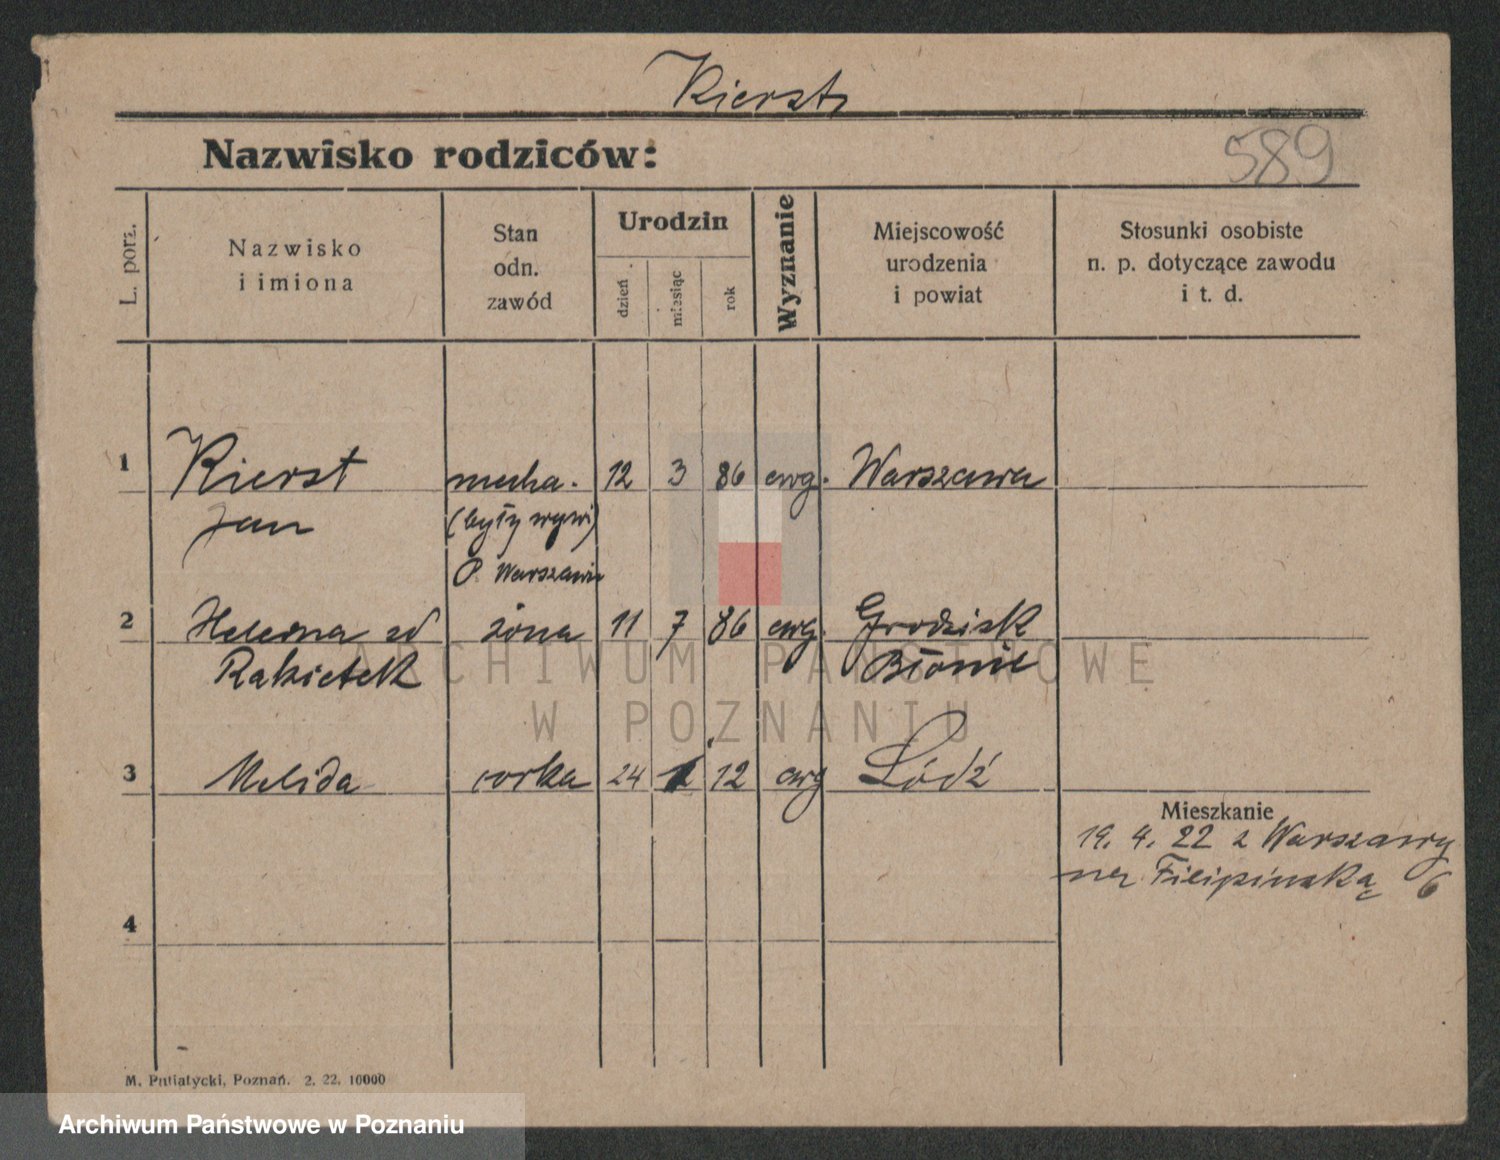 Kierst
Nazwisko rodziców:
589
L. porz.
Nazwisko
i imiona
Stan
odn.
zawód
Urodzin
dzień
miesiąc
rok
Wyznanie
Miejscowość
urodzenia
i powiat
Stosunki osobiste
n. p. dotyczące zawodu
i t. d.
1 Kierst mecha. 12 3 86 ewg. Warszawa
Jan (były
Warszawie
2 Helena żona 11 7 86 ewg. Grodzisk
Rakietek Błonie
ARCHIWUM PAŃSTWOWE
W POZNANIU
3 Melida corka 24 12 ewg Łódź
Mieszkanie
19. 4. 22 z Warszawy
Filipińską 6
4
M. Putiatycki, Poznań. 2. 22. 10000
Archiwum Państwowe w Poznaniu